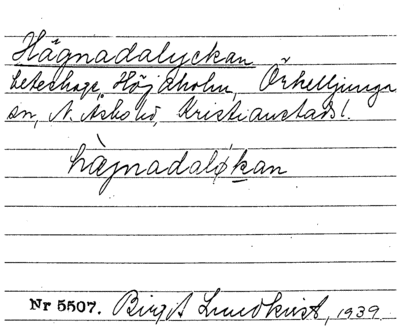 Hägnadalyckan
beteshage, Höjdholm, Örkelljunga
sn, N. Åsbo hd, Kristianstads l.
hàjnadaløkan
Nr 5507. Birgit Lundkvist, 1939